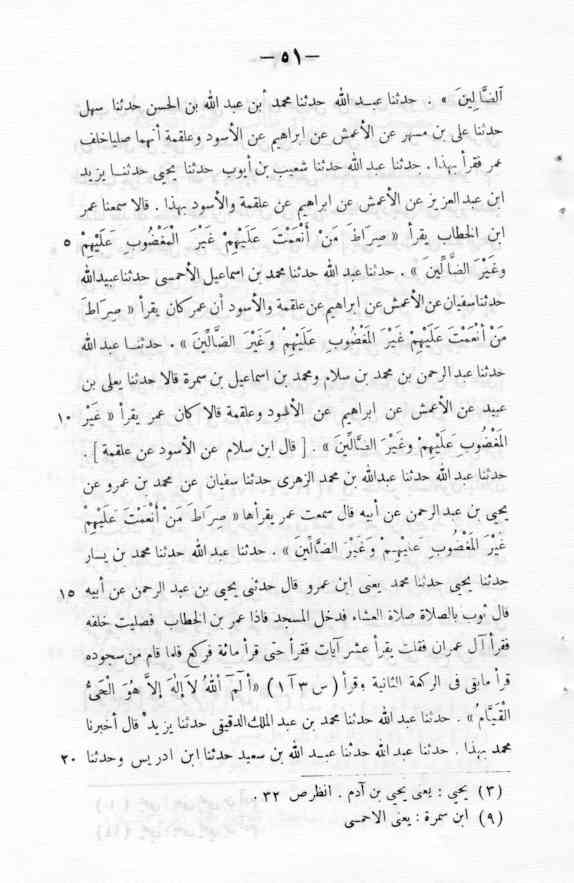 — ٥١ —
ٱلضَّالِينَ » . حدثنا عبد الله حدثنا محمد بن عبد الله بن الحسن حدثنا سهل
حدثنا على بن مسهر عن الأعمش عن ابراهيم عن الأسود وعلقمة أنهما صلياخلف
عمر فقرأ بهذا . حدثنا عبد الله حدثنا شعيب بن أيوب حدثنا يحيى حدثنا يزيد
ابن عبد العزيز عن الأعمش عن ابراهيم عن علقمة والأسود بهذا . قالا سمعنا عمر
ابن الخطاب يقرأ « صِرَاطَ مَنْ أَنْعَمْتَ عَلَيْهِمْ غَيْرَ الْمَغْضُوبِ عَلَيْهِمْ ٥
وَغَيْرَ الضَّالِّينَ » . حدثنا عبد الله حدثنا محمد بن اسماعيل الأحمسى حدثنا عبيد الله
حدثنا سفيان عن الأعمش عن ابراهيم عن علقمة والأسود أن عمر كان يقرأ « صِرَاطَ
مَنْ أَنْعَمْتَ عَلَيْهِمْ غَيْرَ الْمَغْضُوبِ عَلَيْهِمْ وَغَيْرَ الضَّالِّينَ » . حدثنا عبد الله
حدثنا عبد الرحمن بن محمد بن سلام ومحمد بن اسماعيل بن سمرة قالا حدثنا يعلى بن
عبيد عن الأعمش عن ابراهيم عن الأسود وعلقمة قالا كان عمر يقرأ « غَيْرَ ١٠
الْمَغْضُوبِ عَلَيْهِمْ وَغَيْرَ الضَّالِّينَ » . [ قال ابن سلام عن الأسود عن علقمة ] .
حدثنا عبد الله حدثنا عبدالله بن محمد الزهرى حدثنا سفيان عن محمد بن عمرو عن
يحيى بن عبد الرحمن عن أبيه قال سمعت عمر يقرأها « صِرَاطَ مَنْ أَنْعَمْتَ عَلَيْهِمْ
غَيْرَ الْمَغْضُوبِ عَلَيْهِمْ وَغَيْرَ الضَّالِّينَ » . حدثنا عبد الله حدثنا محمد بن يسار
حدثنا يحيى حدثنا محمد يعنى ابن عمرو قال حدثنى يحيى بن عبد الرحمن عن أبيه ١٥
قال ثوب بالصلاة صلاة العشاء فدخل المسجد فاذا عمر بن الخطاب فصليت خلفه
فقرأ آل عمران فقلت يقرأ عشر آيات فقرأ حتى قرأ مائة فركع فلما قام من سجوده
قرأ مابقى فى الركعة الثانية وقرأ ( س ٣ آ ١ ) « أ لَمَ ٱللهُ لاَ إِلٰهَ إِلاَّ هُوَ الْحَىُّ
الْقَيَّامُ » . حدثنا عبد الله حدثنا محمد بن عبد الملك الدقيقى حدثنا يزيد قال أخبرنا
محمد بهذا . حدثنا عبد الله حدثنا عبد الله بن سعيد حدثنا ابن ادريس وحدثنا ٢٠
(٣) يحيى : يعنى يحيى بن آدم . انظر ص ٣٢ .
(٩) ابن سمرة : يعنى الاحمسى